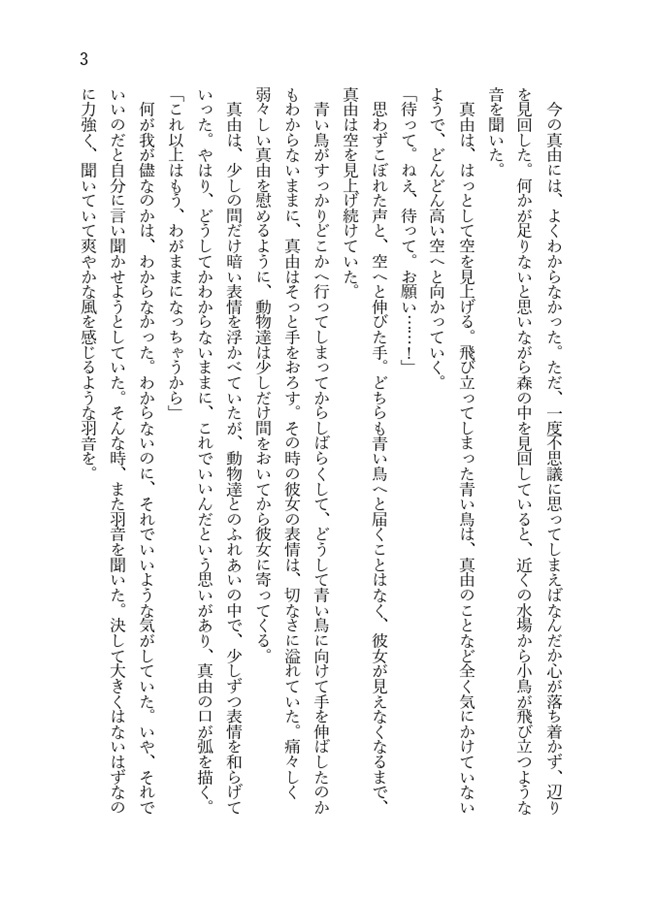 3
　今の真由には、よくわからなかった。ただ、一度不思議に思ってしまえばなんだか心が落ち着かず、辺り
を見回した。何かが足りないと思いながら森の中を見回していると、近くの水場から小鳥が飛び立つような
音を聞いた。
　真由は、はっとして空を見上げる。飛び立ってしまった青い鳥は、真由のことなど全く気にかけていない
ようで、どんどん高い空へと向かっていく。
「待って。ねえ、待って。お願い……！」
　思わずこぼれた声と、空へと伸びた手。どちらも青い鳥へと届くことはなく、彼女が見えなくなるまで、
真由は空を見上げ続けていた。
　青い鳥がすっかりどこかへ行ってしまってからしばらくして、どうして青い鳥に向けて手を伸ばしたのか
もわからないままに、真由はそっと手をおろす。その時の彼女の表情は、切なさに溢れていた。痛々しく
弱々しい真由を慰めるように、動物達は少しだけ間をおいてから彼女に寄ってくる。
　真由は、少しの間だけ暗い表情を浮かべていたが、動物達とのふれあいの中で、少しずつ表情を和らげて
いった。やはり、どうしてかわからないままに、これでいいんだという思いがあり、真由の口が弧を描く。
「これ以上はもう、わがままになっちゃうから」
　何が我が儘なのかは、わからなかった。わからないのに、それでいいような気がしていた。いや、それで
いいのだと自分に言い聞かせようとしていた。そんな時、また羽音を聞いた。決して大きくはないはずなの
に力強く、聞いていて爽やかな風を感じるような羽音を。